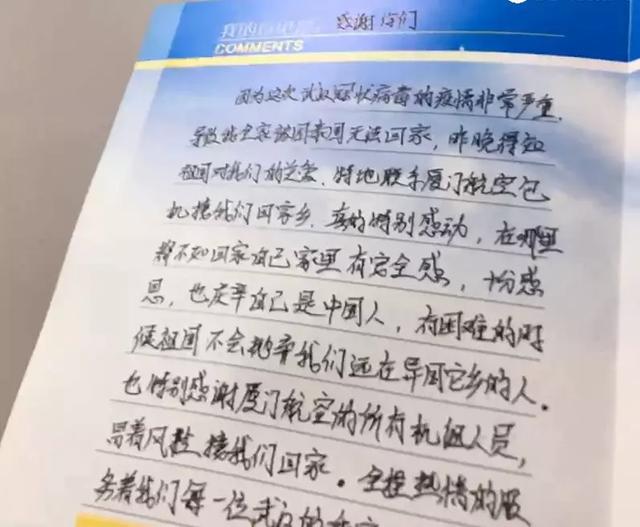 感谢你们
COMMENTS
因为这次武汉冠状病毒的疫情非常严重.
导致我全家被困泰国无法回家，昨晚得知
祖国对我们的关爱、特地联手厦门航空包
机接我们回家乡.真的特别感动，在哪里
都不如回家自己家里有安全感，十分感
恩，也庆幸自己是中国人，有困难的时
候祖国不会抛弃我们远在异国它乡的人.
也特别感谢厦门航空的所有机组人员，
冒着风险接我们回家.全程热情的服
务着我们每一位武汉的